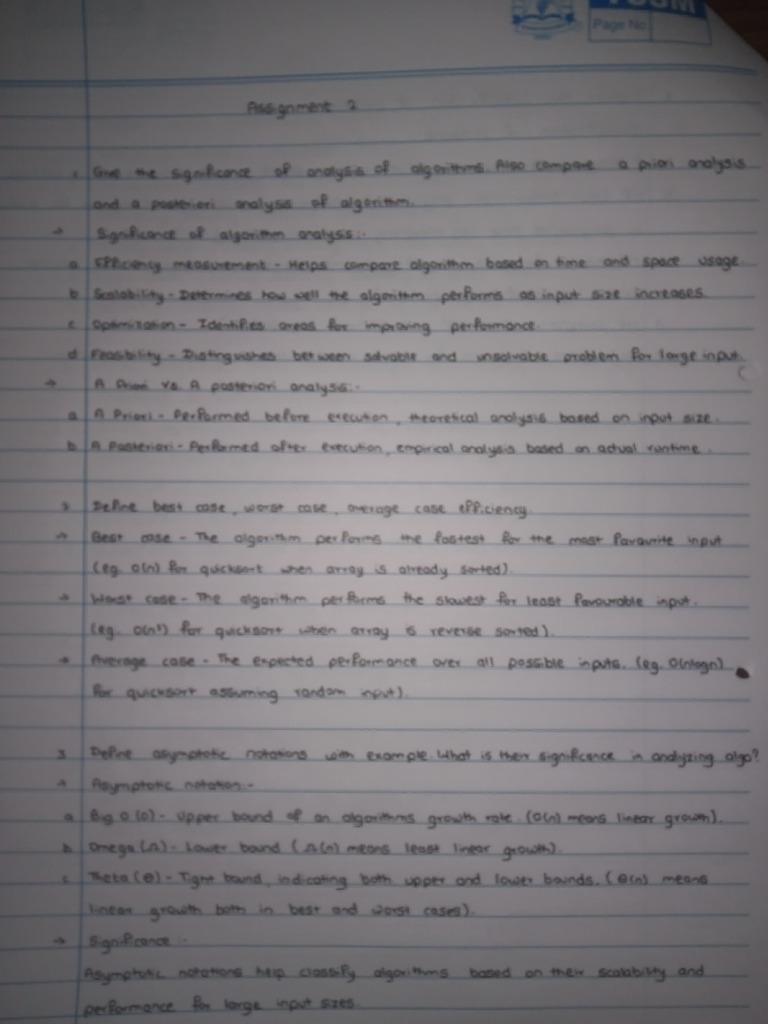 VCSM
Page No
Assignment 2
1. Give the significance of analysis of algorithms. Also compare a priori analysis
and a posteriori analysis of algorithm.
→ Significance of algorithm analysis:-
a Efficiency measurement - Helps compare algorithm based on time and space usage.
b Scalability - Determines how well the algorithm performs as input size increases.
c Optimization - Identifies areas for improving performance.
d Feasibility - Distinguishes between solvable and unsolvable problem for large input.
→ A Priori vs. A posteriori analysis:-
a A Priori - Performed before execution, theoretical analysis based on input size.
b A Posteriori - Performed after execution, empirical analysis based on actual runtime.
2 Define best case, worst case, average case efficiency.
→ Best case - The algorithm performs the fastest for the most favourite input
(eg. O(n) for quicksort when array is already sorted).
→ Worst case - The algorithm performs the slowest for least favourable input.
(eg. O(n²) for quicksort when array is reverse sorted).
→ Average case - The expected performance over all possible inputs. (eg. O(nlogn)
for quicksort assuming random input).
3 Define asymptotic notations with example. What is their significance in analyzing algo?
→ Asymptotic notation:-
a Big O (O) - Upper bound of an algorithms growth rate. (O(n) means linear growth).
b Omega (Ω) - Lower bound (Ω(n) means least linear growth).
c Theta (θ) - Tight bound, indicating both upper and lower bounds. (θ(n) means
linear growth both in best and worst cases).
→ Significance :-
Asymptotic notations help classify algorithms based on their scalability and
performance for large input sizes.